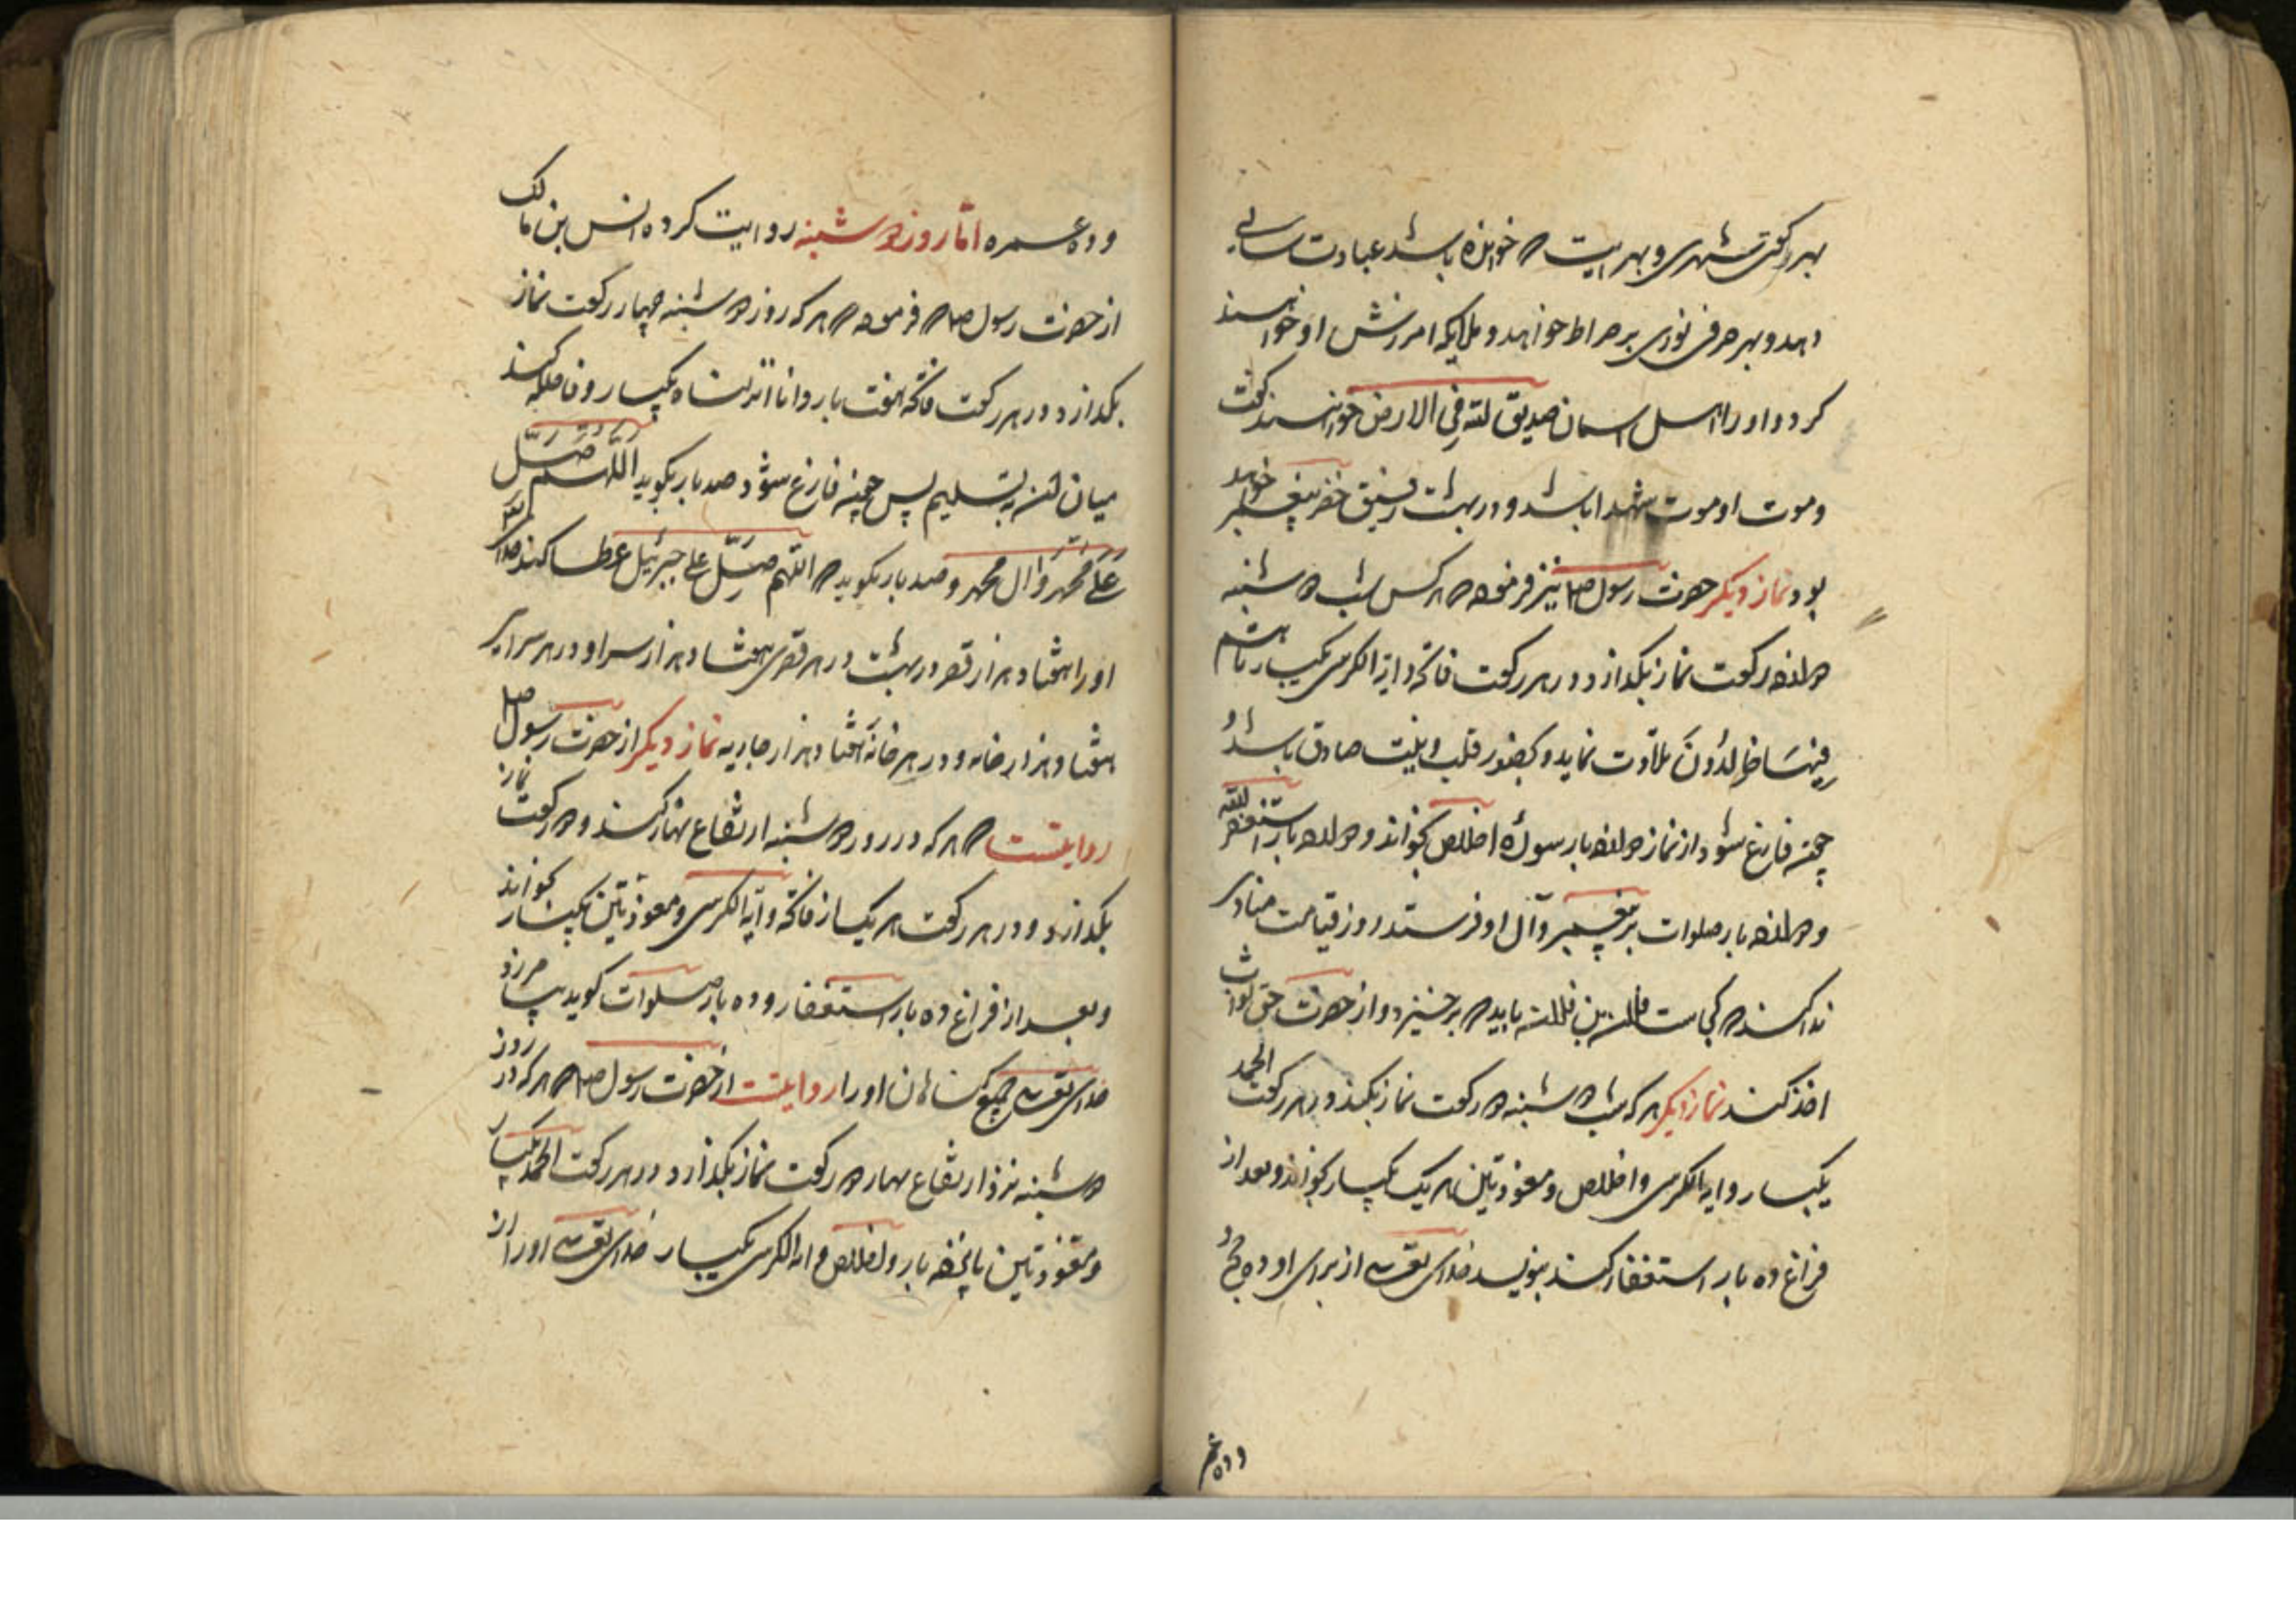 بهر رکعتی شهری و بهر ایت که خوانده باشد عبادت سالی
دهد و بهر حرفی نوری بر صراط خواهد و ملایکه امرزش او خواهند
کرد و اورا اهل اسمان صدیق لله فی الارض خواهند گفت
و موت او موت شهدا باشد و در بهشت رفیق خضر پیغمبر خواهد
بود نماز دیگر حضرت رسول صلعم نیز فرموده که هر کس شب دوشنبه
دوازده رکعت نماز بگذارد و در هر رکعت فاتحه و ایة الکرسی یکبار تا هم
فیها خالدون تلاوت نماید و بحضور قلب و بنیت صادق باشد و
چون فارغ شود از نماز دوازده بار سوره اخلاص بخواند و دوازده بار استغفر الله
و دوازده بار صلوات بر پیغمبر وآل او فرستد روز قیامت منادی
ندا کند که کجاست فلان بن فلان باید که برخیزد و از حضرت حق ثواب
اخذ کند نماز دیگر هر که شب دوشنبه دو رکعت نماز بکند و در هر رکعت الحمد
یکبار و ایة الکرسی و اخلاص و معوذتین هر یک یکبار بخواند و بعد از
فراغ ده بار استغفار کند بنویسد خدای تعالی از برای او ده حج و
وده عمر
وده عمره امّا روز دوشنبه روایت کرده انس بن مالک
از حضرت رسول صلعم که فرموده که هر که روز دوشنبه چهار رکعت نماز
بگذارد در هر رکعت فاتحه هفت بار و انا انزلناه یکبار و فاصله کند
میان آن به تسلیم پس چون فارغ شود صد بار بگوید اللهم صلّ
علی محمد و ال محمد و صد بار بگوید که اللهم صلّ علی جبرئیل عطا کند خدای تعالی
او را هفتاد هزار قصر در بهشت در هر قصری هفتاد هزار سرا و در هر سرایی
هفتاد هزار خانه و در هر خانه هفتاد هزار جاریه نماز دیگر از حضرت رسول صلعم
روایتست که هر که در روز دوشنبه ارتفاع نهار کند دو رکعت نماز
بگذارد و در هر رکعت هر یک از فاتحه و آیة الکرسی و معوذتین یکبار بخواند
و بعد از فراغ ده بار استغفار و ده بار صلوات گوید بیامرزد
خدای تعالی جمیع گناهان او را روایتست از حضرت رسول صلعم که هر که در روز
دوشنبه نزد ارتفاع نهار دو رکعت نماز بگذارد و در هر رکعت الحمد یکبار
و معوذتین پانزده بار و اخلاص و ایة الکرسی یکبار خدای تعالی او را از